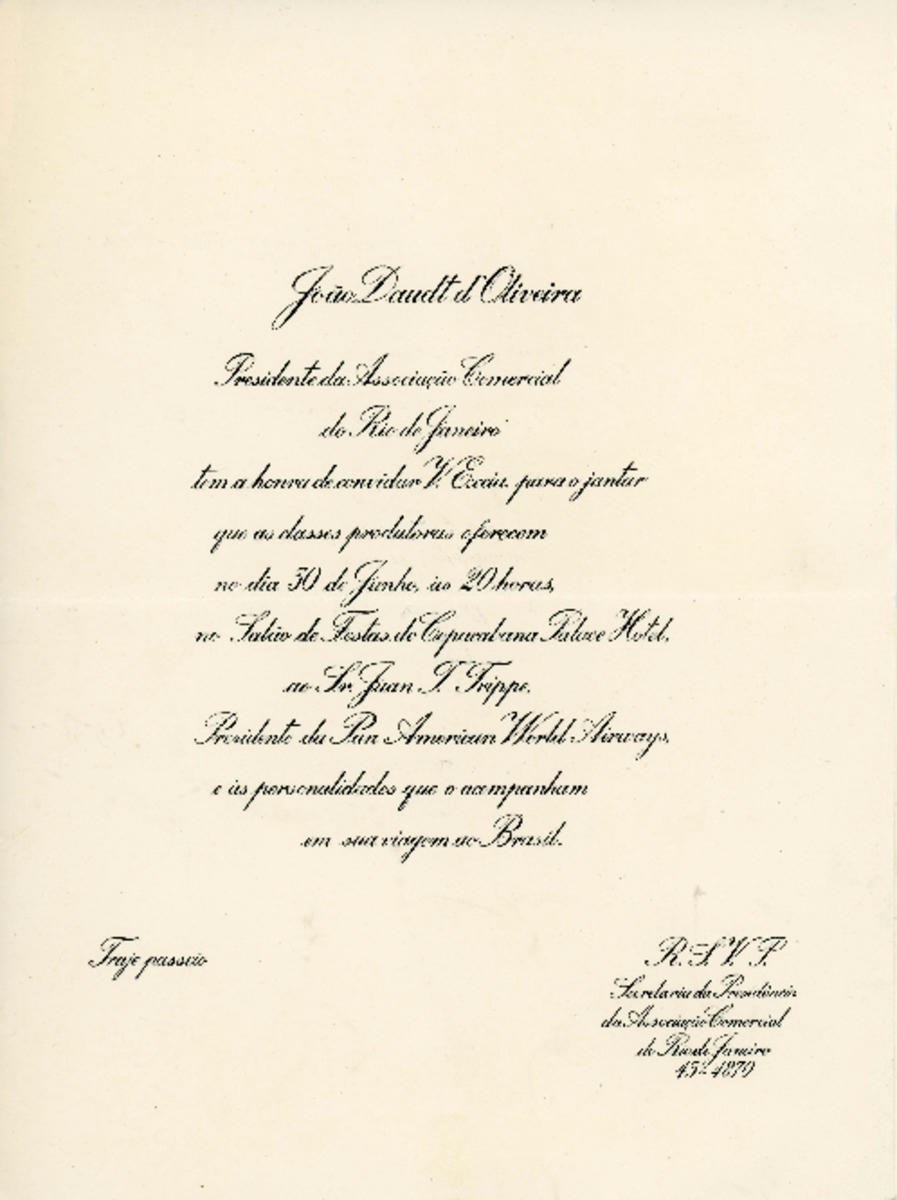 João Daudt d'Oliveira
Presidente da Associação Comercial
do Rio de Janeiro
tem a honra de convidar V. Excia. para o jantar
que as classes produtoras oferecem
no dia 30 de Junho, às 20 horas,
no Salão de Festas do Copacabana Palace Hotel,
ao Sr. Juan T. Trippe,
Presidente da Pan American World Airways,
e às personalidades que o acompanham
em sua viagem ao Brasil.
Traje passeio
R. S. V. P.
Secretaria da Presidência
da Associação Comercial
do Rio de Janeiro
4870